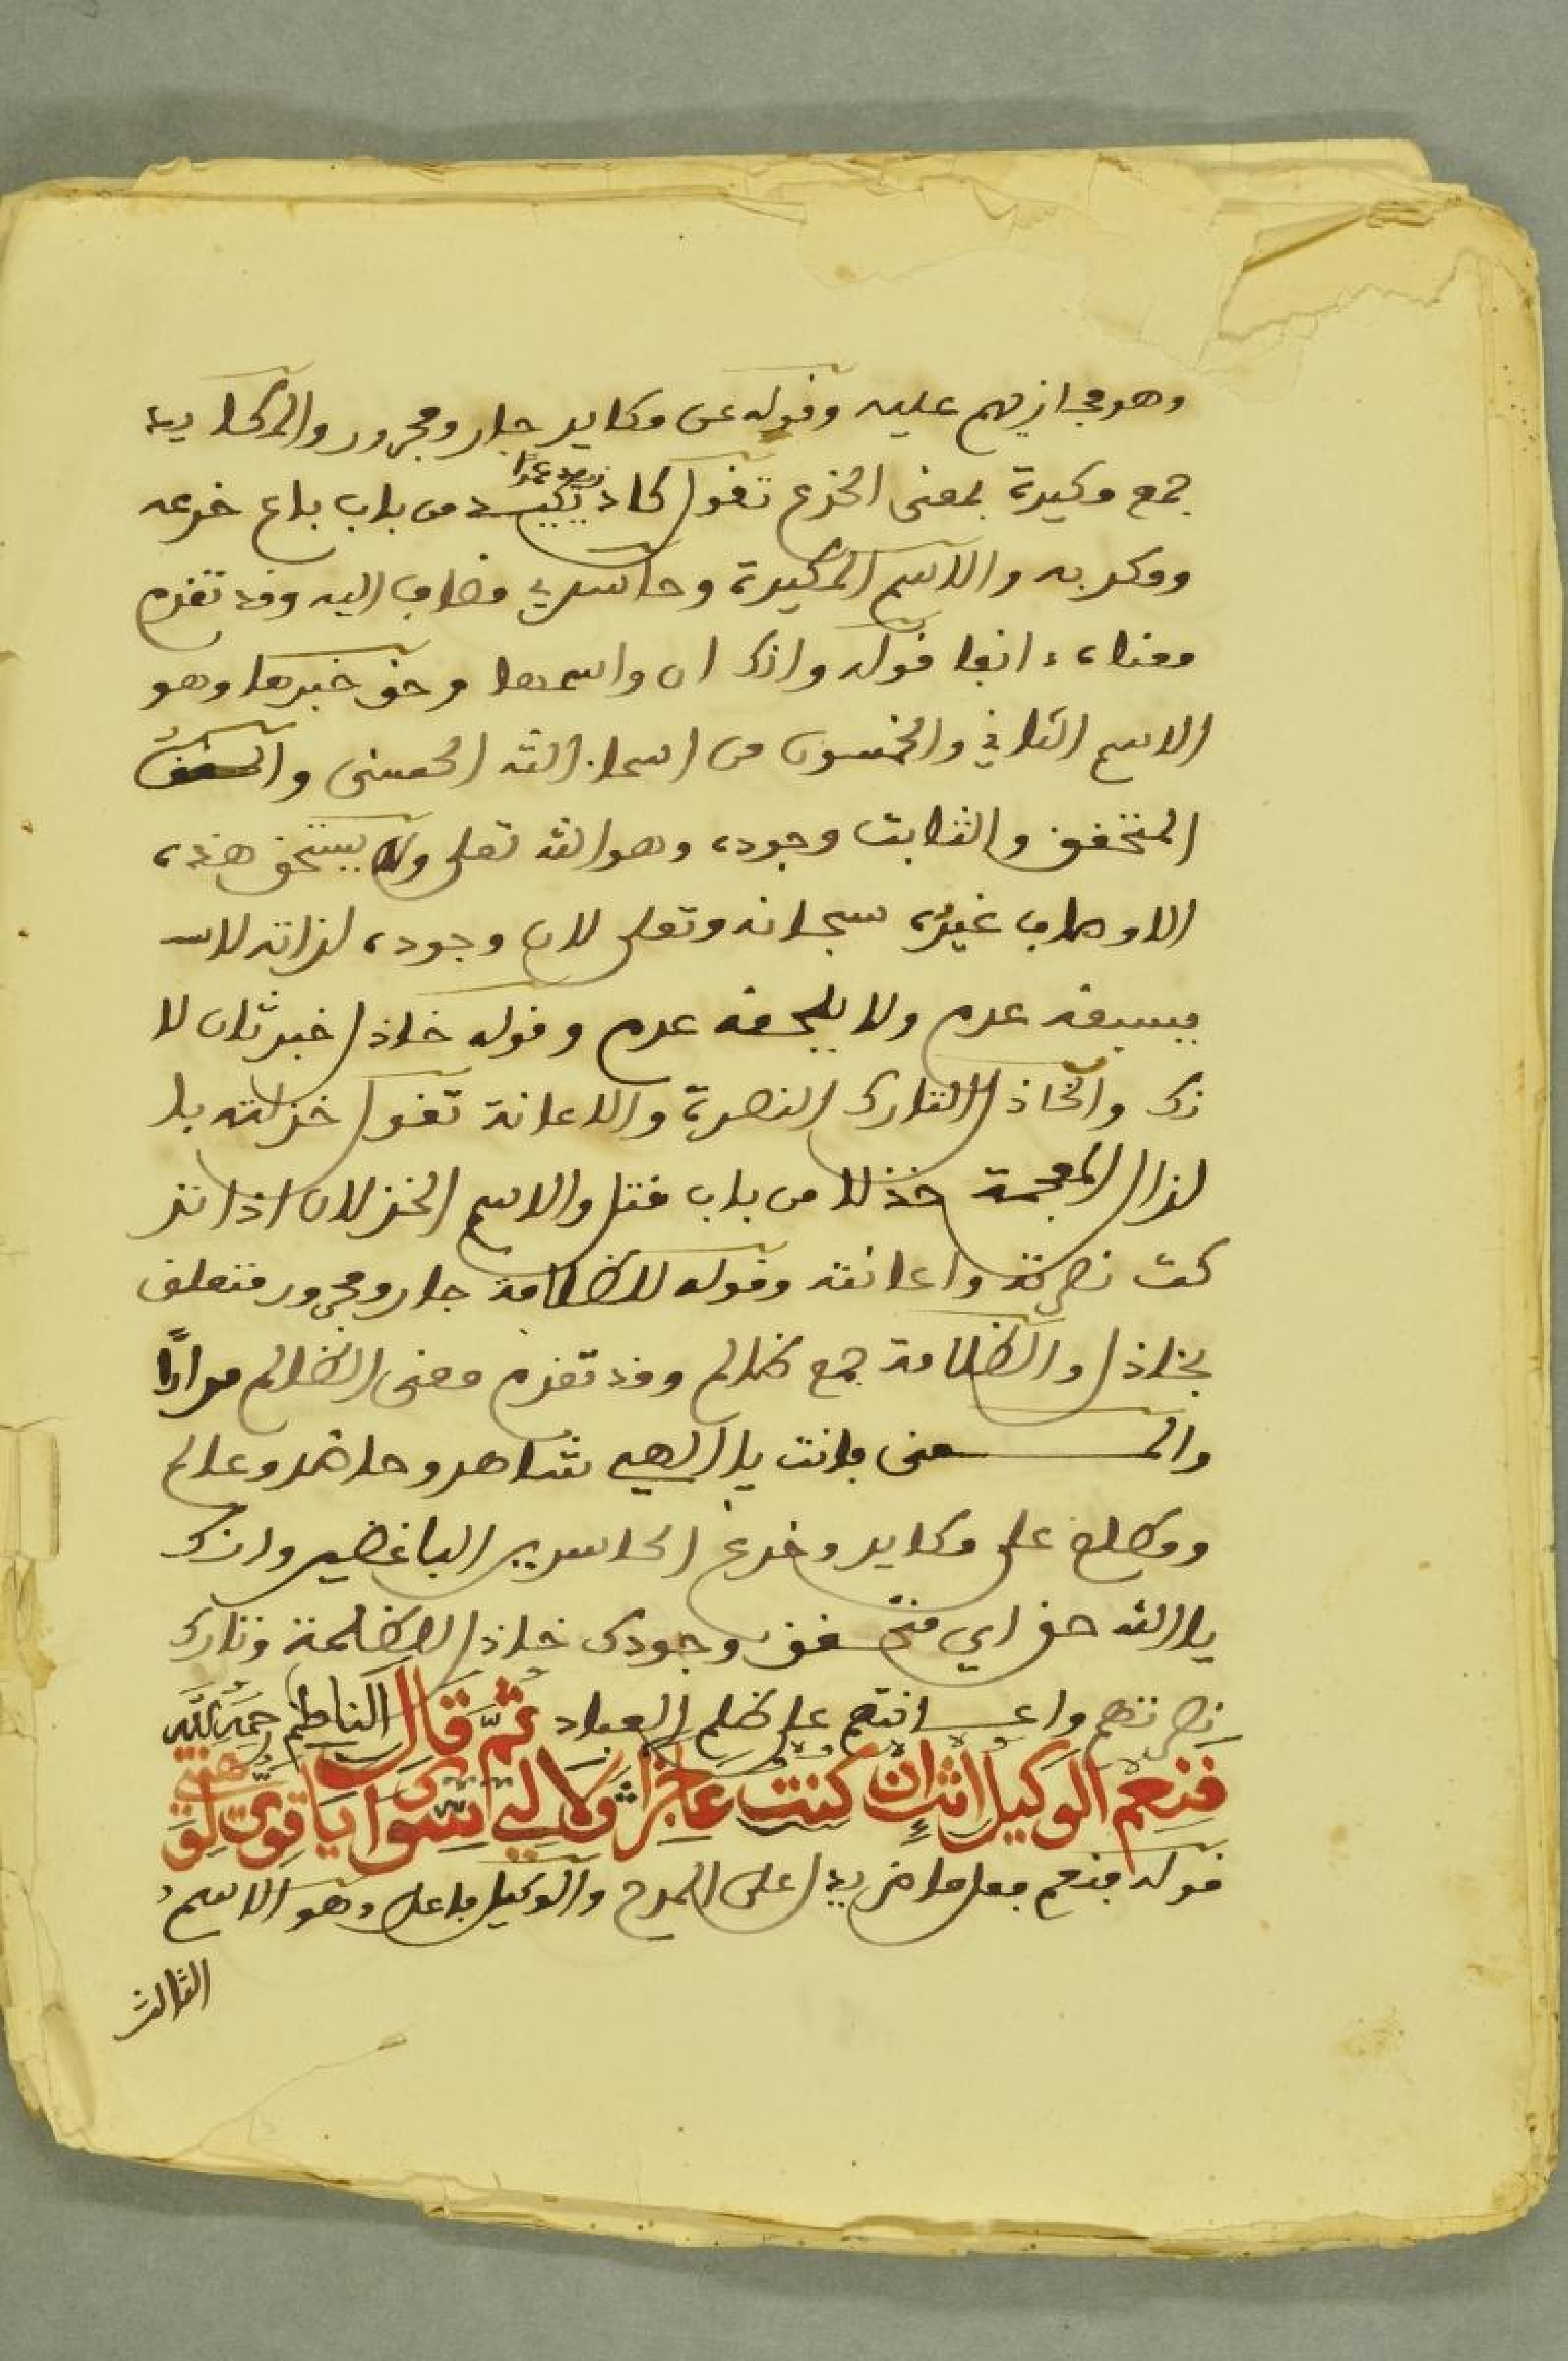 وهو مجازيهم عليه وقوله عن مكايد جار ومجرور والمكايد
جمع مكيدة بمعنى الخدع تقول كاد يكيد من باب باع خدعه
ومكر به والاسم المكيدة وحاسدي مضاف اليه وقد تقدم
معناه انفا قوله وانك ان واسمها وحق خبرها وهو
الاسم الثاني والخمسون من اسماء الله الحسنى والحق
المتحقق والثابت وجوده وهو الله تعلى ولا يستحق هذه
الاوصاف غيره سبحانه وتعلى لان وجوده لذاته لا
يسبقه عدم ولا يلحقه عدم وقوله خاذل خبر ثان لا
نك والخاذل التارك النصرة والاعانة تقول خذلته با
لذال المعجمة خذلا من باب قتل والاسم الخذلان اذا تر
كت نصرته واعانته وقوله للظلامة جار ومجرور متعلق
بخاذل والظلامة جمع ظالم وقد تقدم معنى الظالم مرارًا
والمعنى فانت يا الهي شاهد وحاضر وعالم
ومطلع على مكايد وخدع الحاسدين الباغضين وانك
يا الله حق اي متحقق وجودك خاذل الظلمة وتارك
نصرتهم واعانتهم على ظلم العباد ثُمَّ قَالَ الناظم رحمه الله
فَنِعْمَ الوَكِيلُ انْتَ ان كُنْتَ عَاجِزًا وَلَا لِي سِوَاكَ يَا قَوِيُّ لِقُوَّتِي
قوله فنعم فعل ماض يدل على المدح والوكيل فاعل وهو الاسم
الثالث